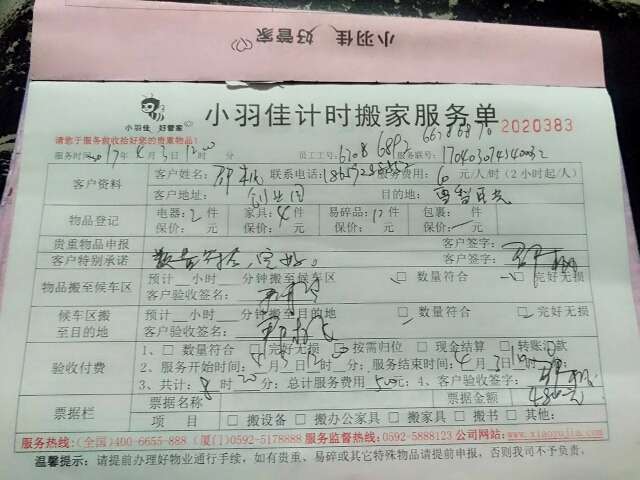 小羽佳 好管家
小羽佳 好管家
小羽佳计时搬家服务单
2020383
请您于服务前收拾好您的贵重物品!
服务时间: 2017年4月3日12时 分 员工工号: 6108 6892 6678 6870 服务联号:
客户资料 客户姓名: 联系电话: 服务费用: 元/人/时(2小时起/人)
客户地址: 创业园 目的地:
物品登记 电器: 2件 家具: 4件 易碎品: 12件 包裹: 件
保价: 元 保价: 元 保价: 元 保价: 元
贵重物品申报 客户签字:
客户特别承诺 数量符合,完好。 客户签字:
物品搬至候车区 预计 小时 分钟搬至候车区 □ 数量符合 □ 完好无损
客户验收签名:
候车区搬至目的地 预计 小时 分钟搬至目的地 □ 数量符合 □ 完好无损
客户验收签名:
验收付费 1、□ 数量符合 □ 完好无损 □ 按需归位 □ 现金结算 □ 转账汇款
2、服务开始时间: 月 日 时 分; 服务结束时间: 4月3日 时 分
3、共计: 8时20分; 总计服务费用 500元; 4、客户验收签字:
票据栏 票据名称 票据金额 4800元
项 目 □ 搬设备 □ 搬办公家具 □ 搬家具 □ 搬书 □ 其他:
服务热线:(全国)400-6655-888 (厦门)0592-5178888 服务监督热线: 0592-5888123 公司网站: www.xiaoyujia.com
温馨提示: 请提前办理好物业通行手续,如有贵重、易碎或其它特殊物品请提前申报,否则我司不予负责。